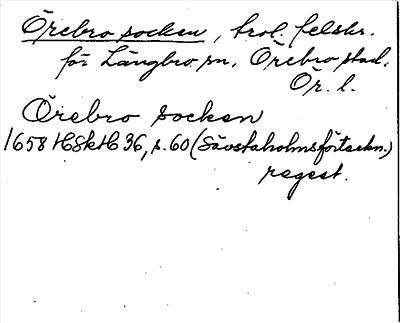 Örebro socken, trol. felskr.
för Längbro sn, Örebro stad,
Ör. l.
Örebro socken
1658 HSkH 36, s. 60 (Sävstaholmsförteckn.)
regest.